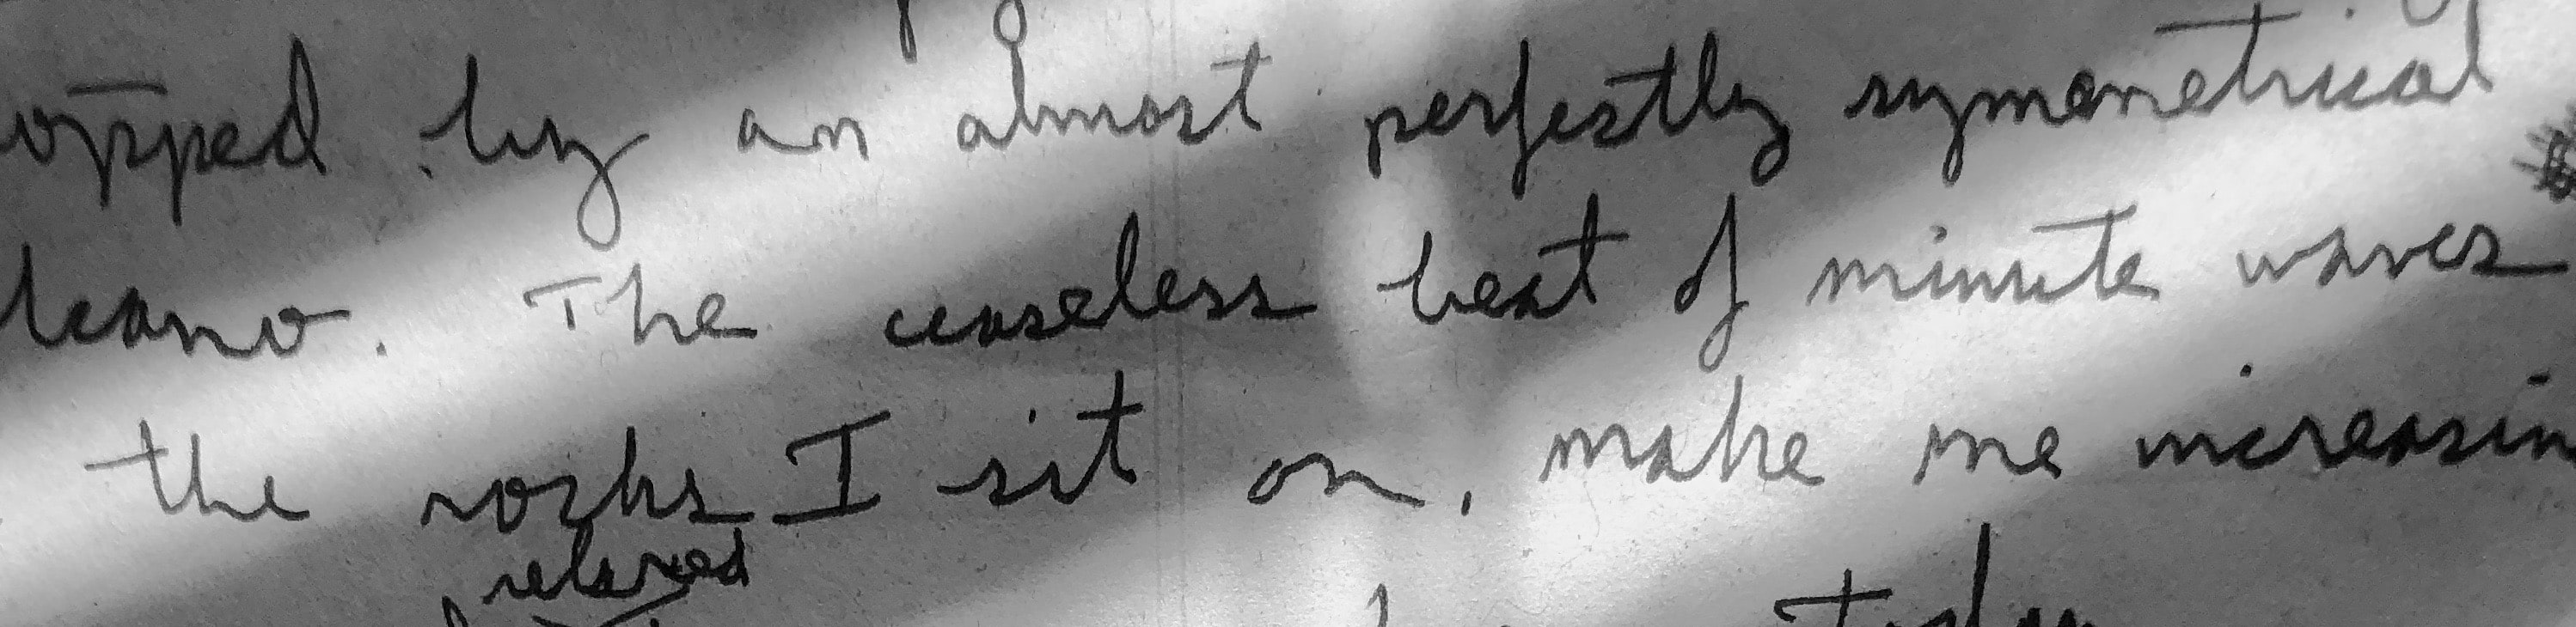 opped by an almost perfectly symmetrical
lcano. The ceaseless beat of minute waves
the rocks I sit on, make me increasin
relaxed
Today